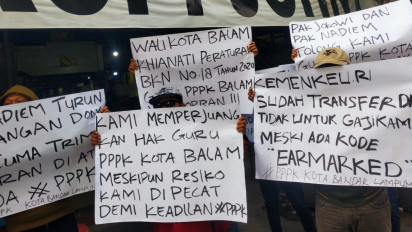 WALIKOTA BALAM
KHIANATI PERATURAN
BKN NO.18 TAHUN 2020
PPPK BALAM
PAK JOKOWI DAN
PAK NADIEM
TOLONG KAMI
PPPK BALAM
NADIEM TURUN
DI AT
PPPK
#PPPK KOTA BANDAR LAMPUNG
KAMI MEMPERJUANG
KAN HAK GURU
PPPK KOTA BALAM
MESKIPUN RESIKO
KAMI DI PECAT
DEMI KEADILAN #PPPK
KEMENKEU RI
SUDAH TRANSFER DA
TIDAK UNTUK GAJI KAMI
MESKI ADA KODE
"EARMARKED"
#PPPK KOTA BANDAR LAMPUNG